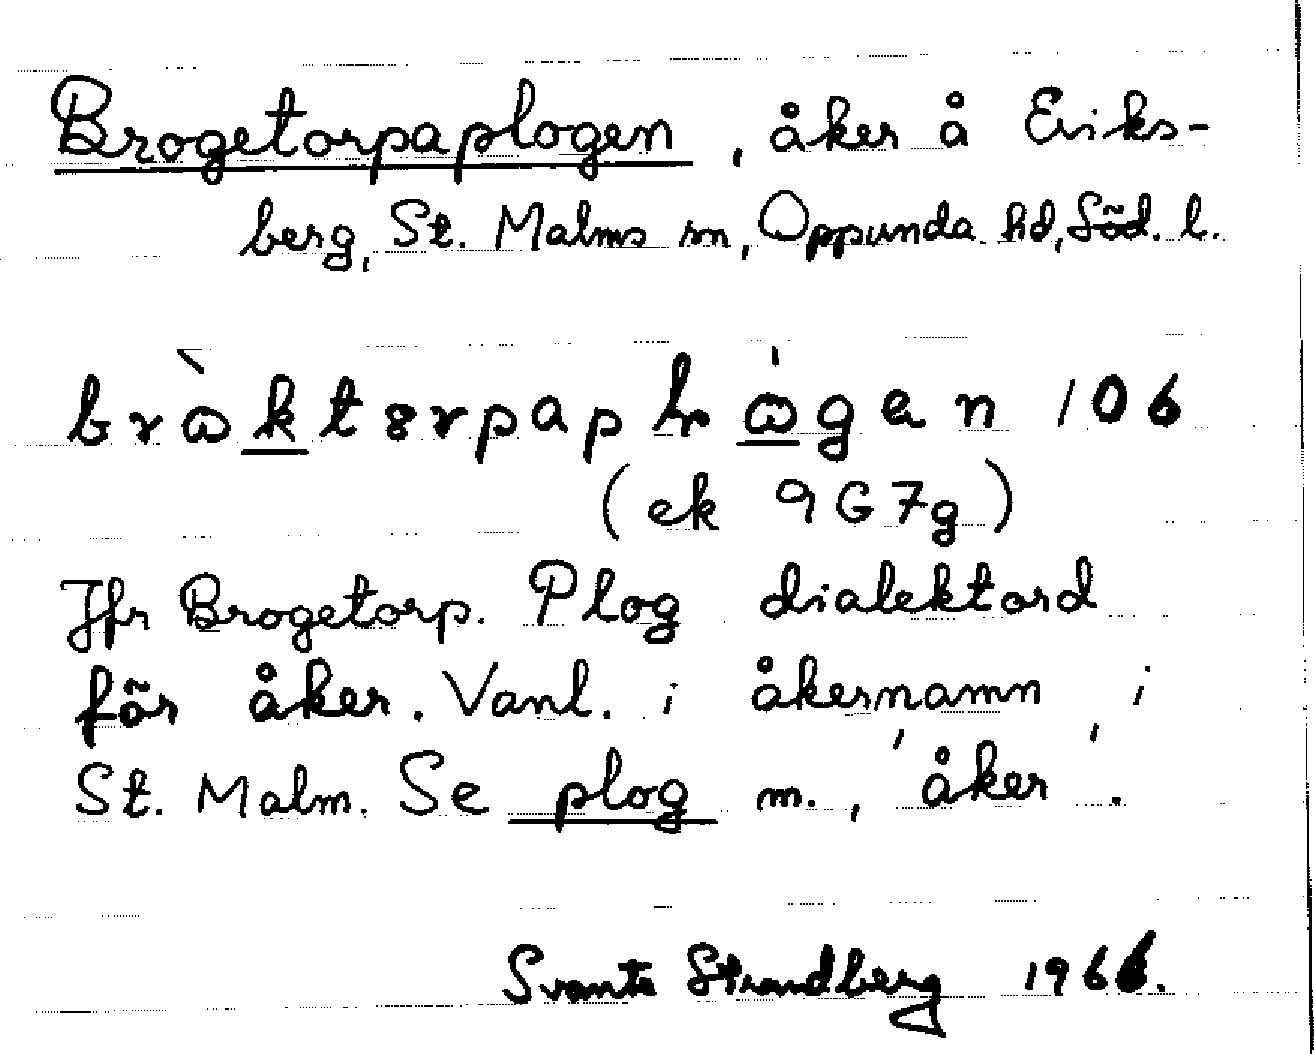 Brogetorpaplogen, åker å Eriks-
berg, St. Malms sn, Oppunda hd, Söd. l.
(ek 9G7g)
Jfr Brogetorp. Plog dialektord
för åker. Vanl. i åkernamn i
St. Malm. Se plog m., 'åker'.
Svante Strandberg 1966.